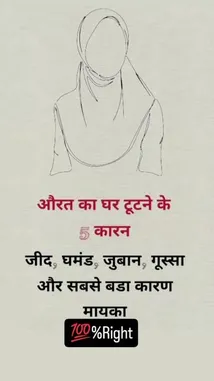 औरत का घर टूटने के
5 कारन
जीद, घमंड, जुबान, गूस्सा
और सबसे बडा कारण
मायका
💯%Right